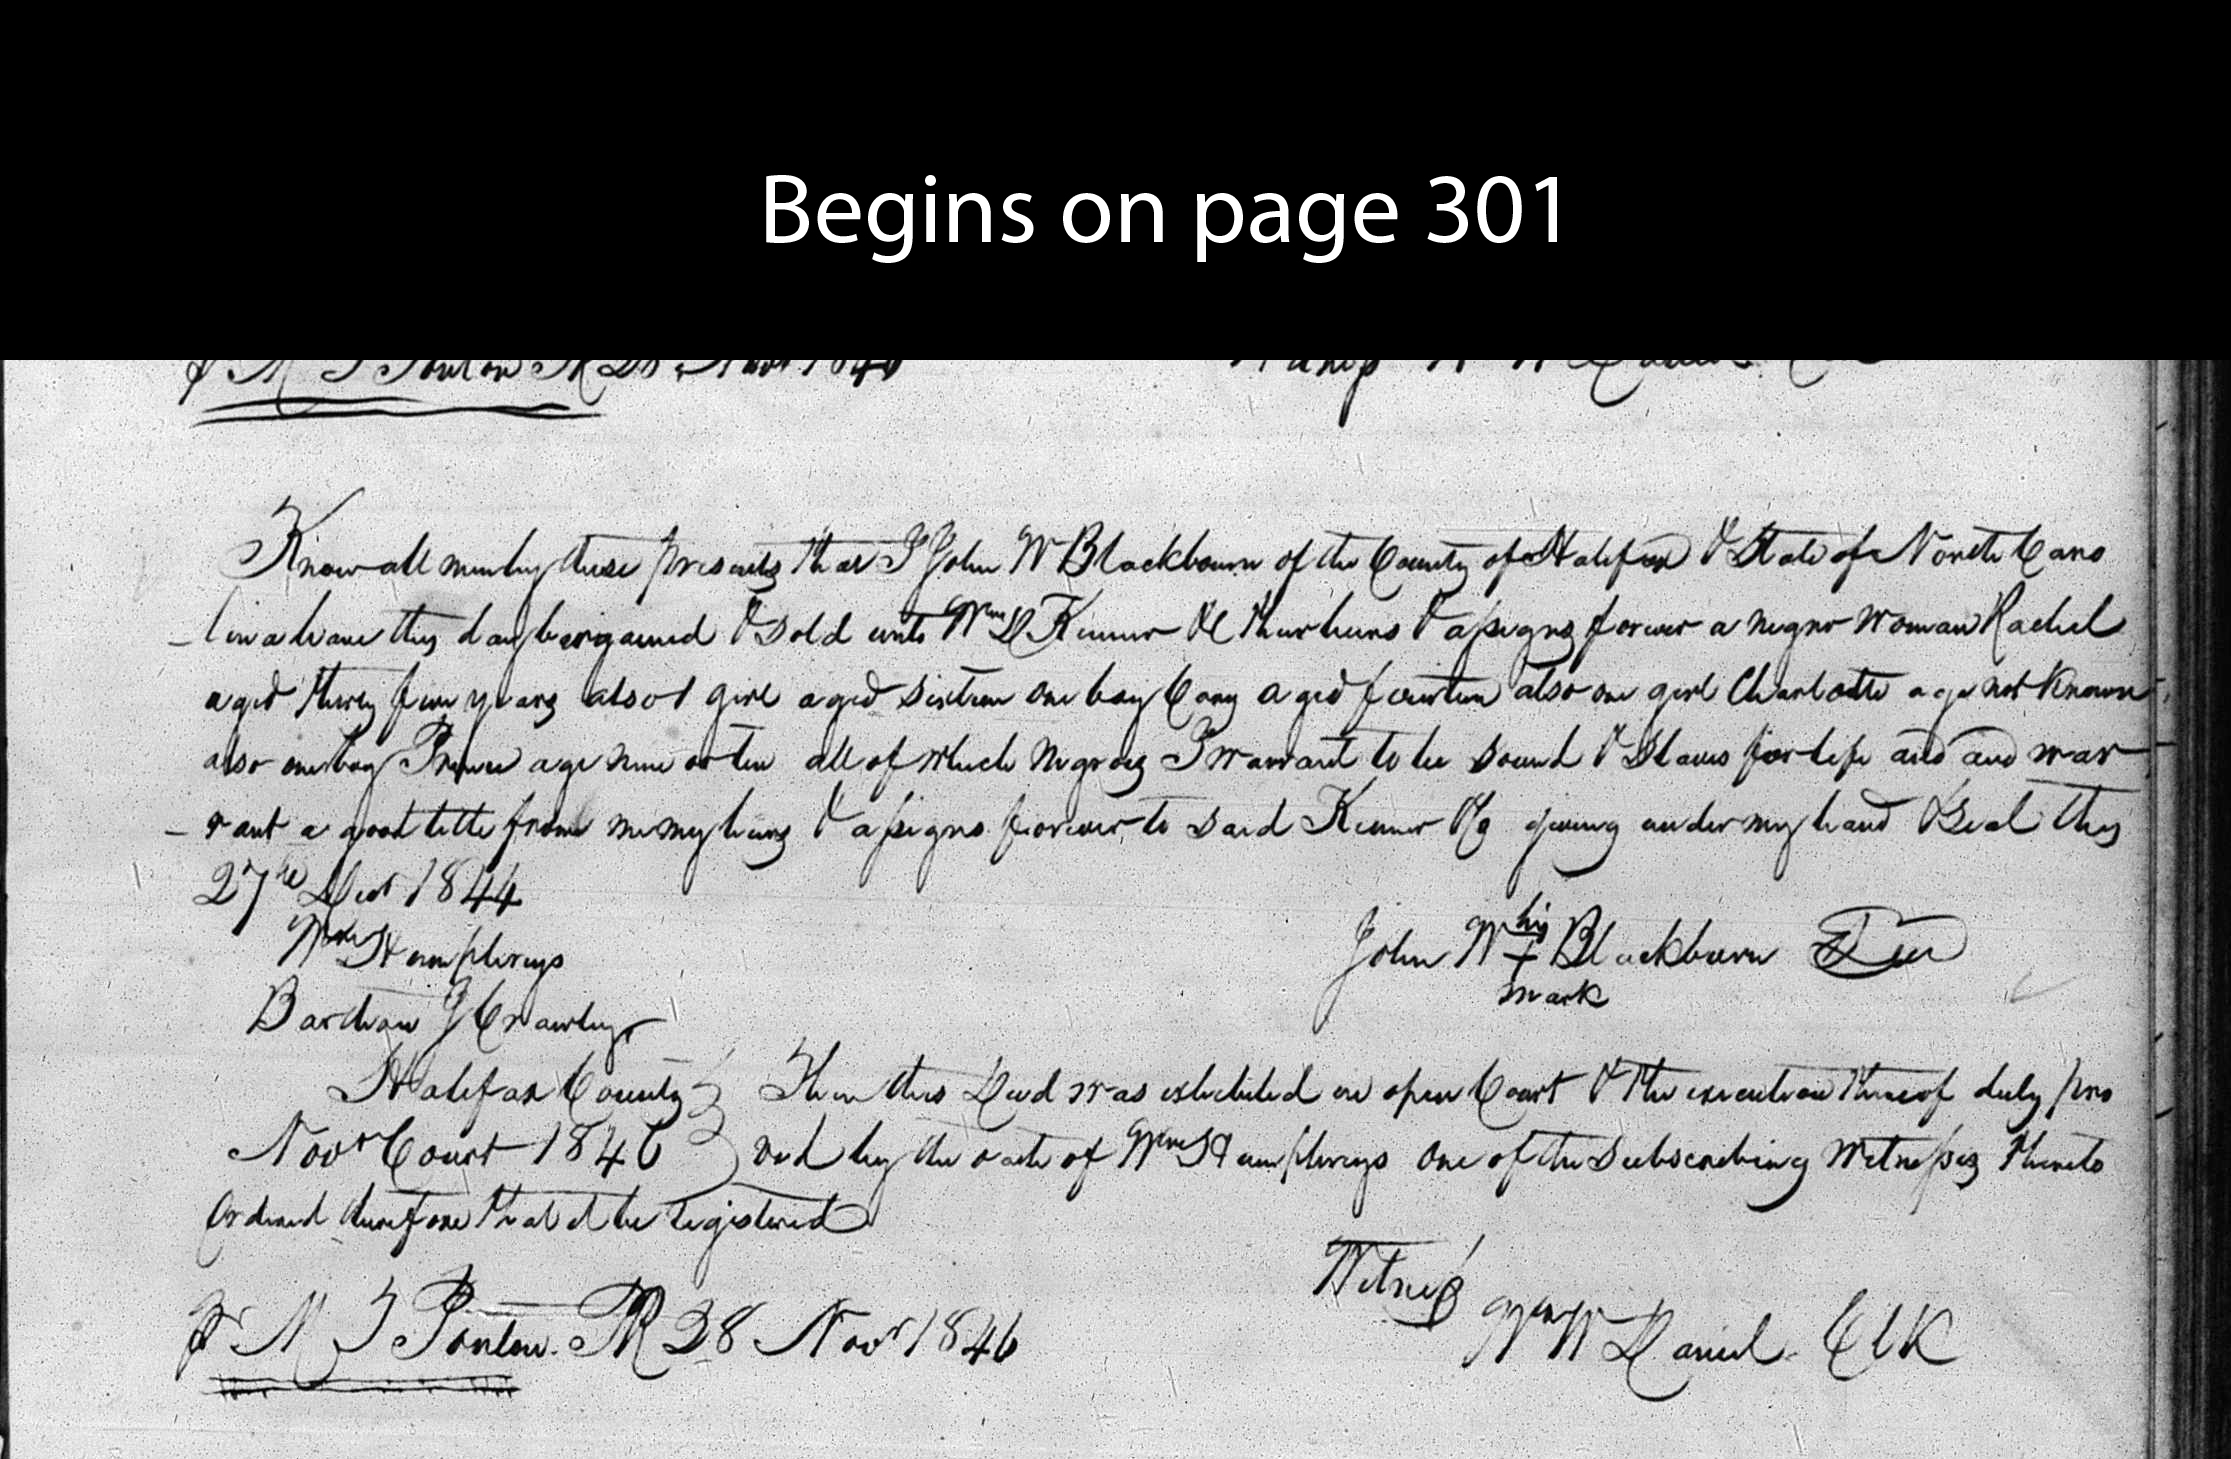 Begins on page 301
Know all men by these presents that I John W Blackbourn of the County of Halifax & State of North Caro
lina have this day bargained & sold unto Wm D Kinner & C their heirs & assigns forever a negro woman Rachel
aged thirty five years also 1 girl aged sixteen one boy Cary aged fourteen also one girl Charlotte age not known
also one boy Prince age nine or ten all of which negroes I warrant to be sound & Slaves for life and and war
rant a good title from me my heirs & assigns forever to said Kinner & C given under my hand & Seal this
27th Dect 1844
Wm Humphreys
John W his Blackburn Seal
mark
J Crawley
Halifax County
Then this Deed was exhibited in open Court & the execution thereof duly pro
Novr Court 1846
ved by the oath of Wm Humphreys one of the Subscribing Witnesses thereto
Ordered therefore that it be Registered
Witness
Wm W Daniel Clk
Pr M T Ponton PR 28 Novr 1846